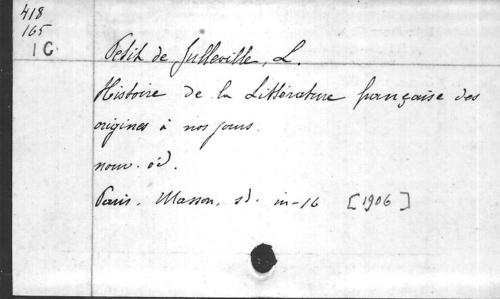 418
165
1C.
Petit de Julleville, L.
Histoire de la Littérature française des
origines à nos jours.
nouv. éd.
Paris. Masson, sd. in-16 [1906]